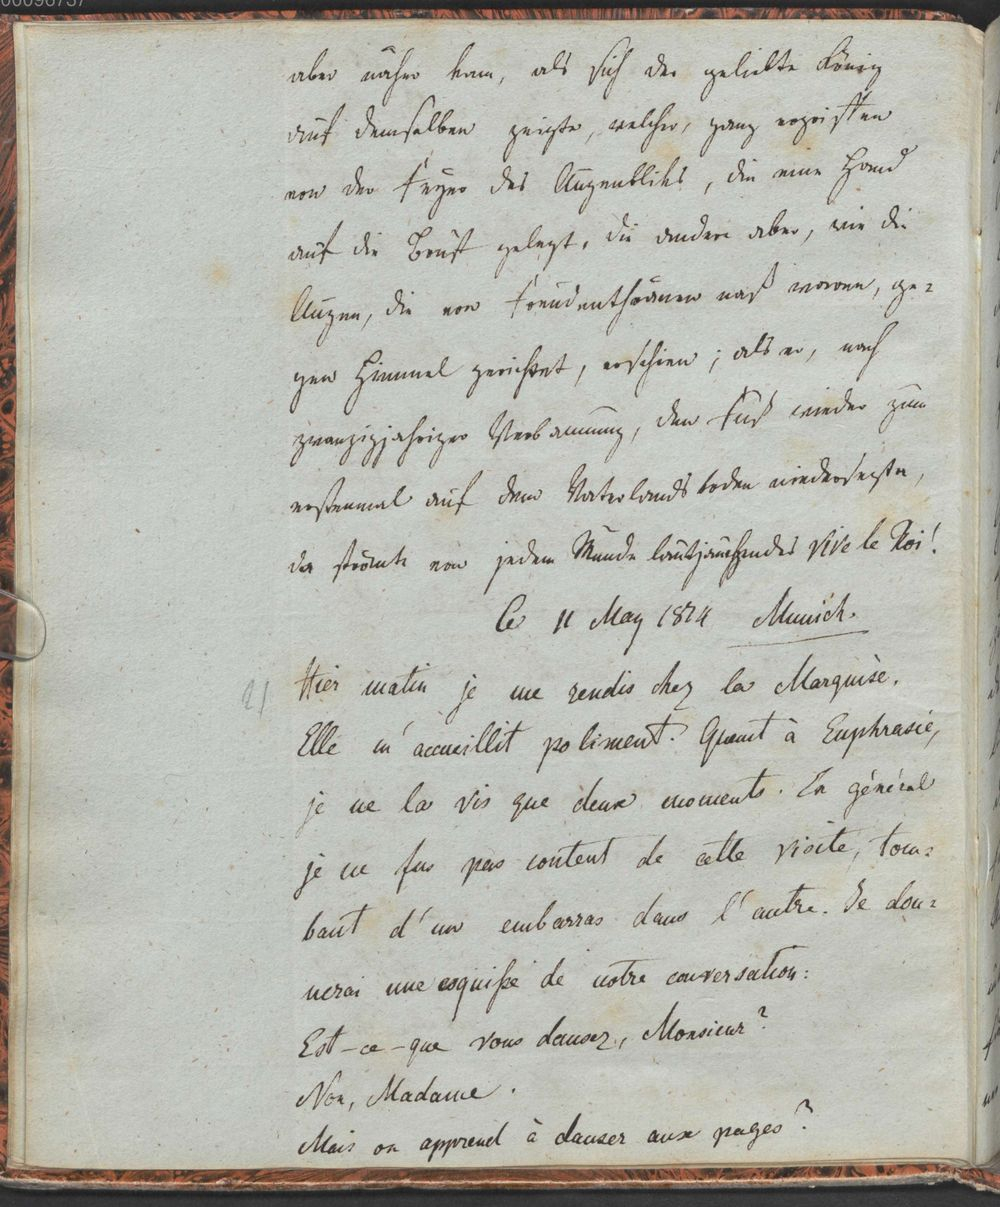 00096737
aber näher kam, als sich der geliebte König
auf demselben zeigte, welcher, ganz ergriffen
von der Feyer des Augenbliks, die eine Hand
auf die Brust gelegt, die andere aber, wie die
Augen, die von Freudenthränen naß waren, ge=
gen Himmel gerichtet, erschien; als er, nach
zwanzigjähriger Verbannung, den Fuß wieder zum
erstenmal auf dem Vaterlandsboden niedersezte,
da strömte von jedem Munde lautjauchzendes vive le Roi!
Ce 11 May 1814 Munich.
21 Hier matin je me rendis chez la Marquise.
Elle m'accueillit poliment. Quant à Euphrasie,
je ne la vis que deux moments. En général
je ne fus pas content de cette visite, tom=
bant d'un embarras dans l'autre. Je don=
nerai une esquisse de notre conversation:
Est-ce-que vous dansez, Monsieur?
Non, Madame.
Mais on apprend à danser aux pages?